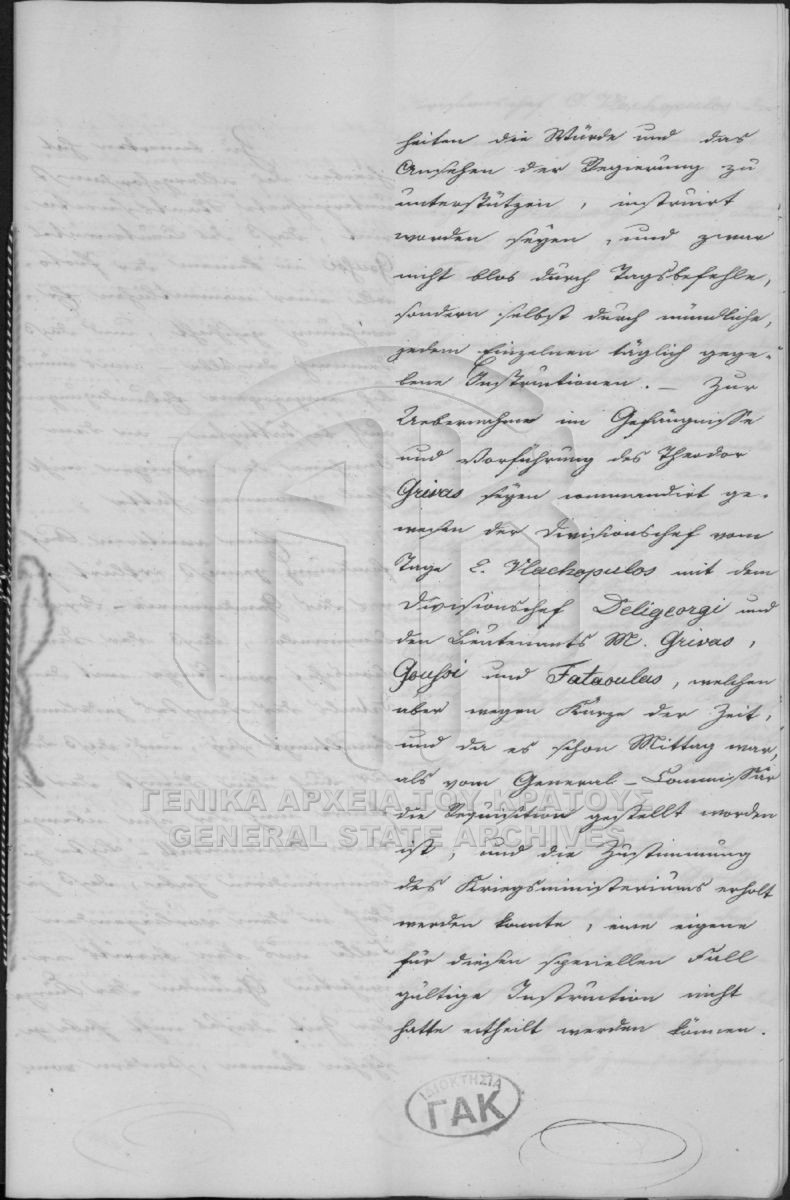 heiten die Würde und das
Ansehen der Regierung zu
unterstützen, instruirt
worden seyen, und zwar
nicht blos durch Tagsbefehle,
sondern selbst durch mündliche,
jedem Einzelnen täglich gege-
bene Instructionen. — Zur
Uebernahme im Gefängnisse
und Vorführung des Theodor
Grivas seyen commandirt ge-
wesen der Divisionschef vom
Tage E. Vlachopulos mit dem
Divisionschef Deligeorgi und
den Lieutenants M. Grivas,
Goussi und Fataoulas, welchen
aber wegen Kürze der Zeit,
und da es schon Mittag war,
als vom General-Commissär
die Requisition gestellt worden
ist, und die Zustimmung
des Kriegsministeriums erholt
werden konnte, eine eigene
für diesen speciellen Fall
gültige Instruction nicht
hatte ertheilt werden können.
ΓΕΝΙΚΑ ΑΡΧΕΙΑ ΤΟΥ ΚΡΑΤΟΥΣ
GENERAL STATE ARCHIVES
ΙΔΙΟΚΤΗΣΙΑ
ΓΑΚ